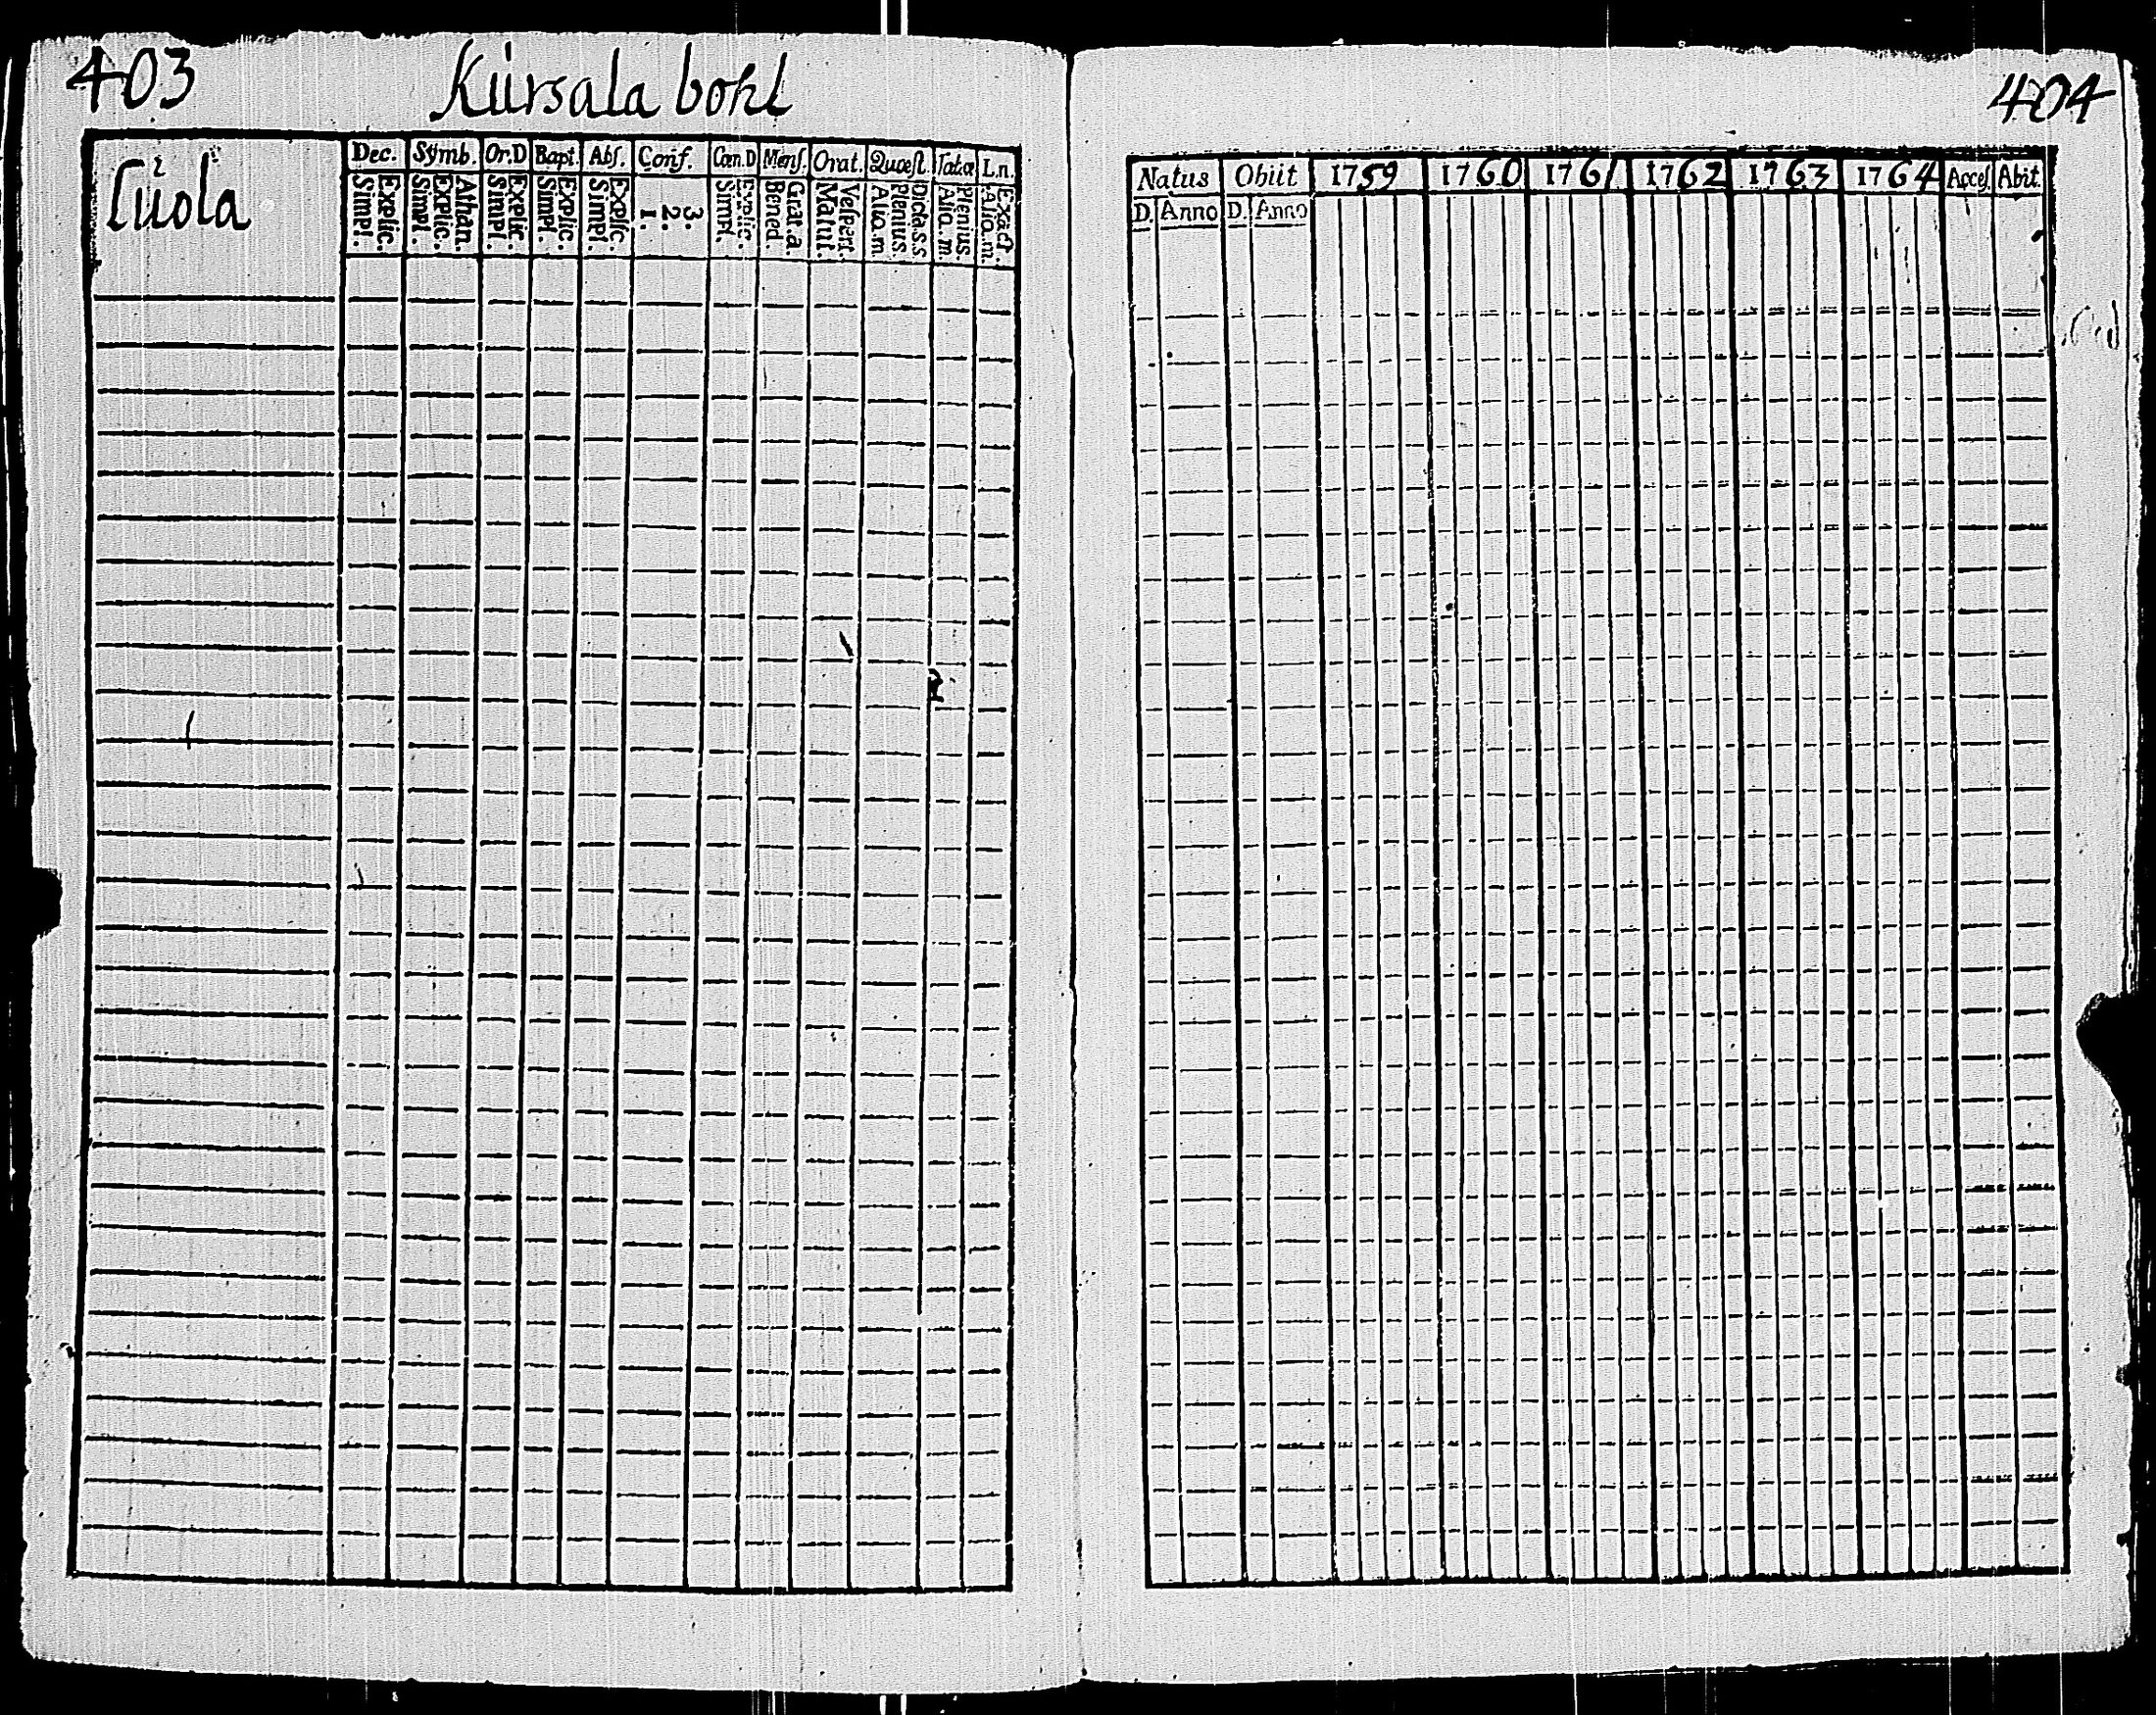 403 Kürsala bohl
Lüola
Dec. Symb. Or.D Bapt. Abs. Conf. Cœn.D Mens. Orat. Quæst. Tab.œ L.n.
Simpl. Explic. Simpl. Explic. Athan. Simpl. Explic. Simpl. Explic. Simpl. Explic. 1. 2. 3. Simpl. Explic. Bened. Grat.a. Matut. Vespert. Aliq.m. Plenius. Dicta.s.s Aliq.m. Plenius. Aliq.m. Exact.
404
Natus Obiit 1759 1760 1761 1762 1763 1764 Acces. Abit.
D. Anno D. Anno